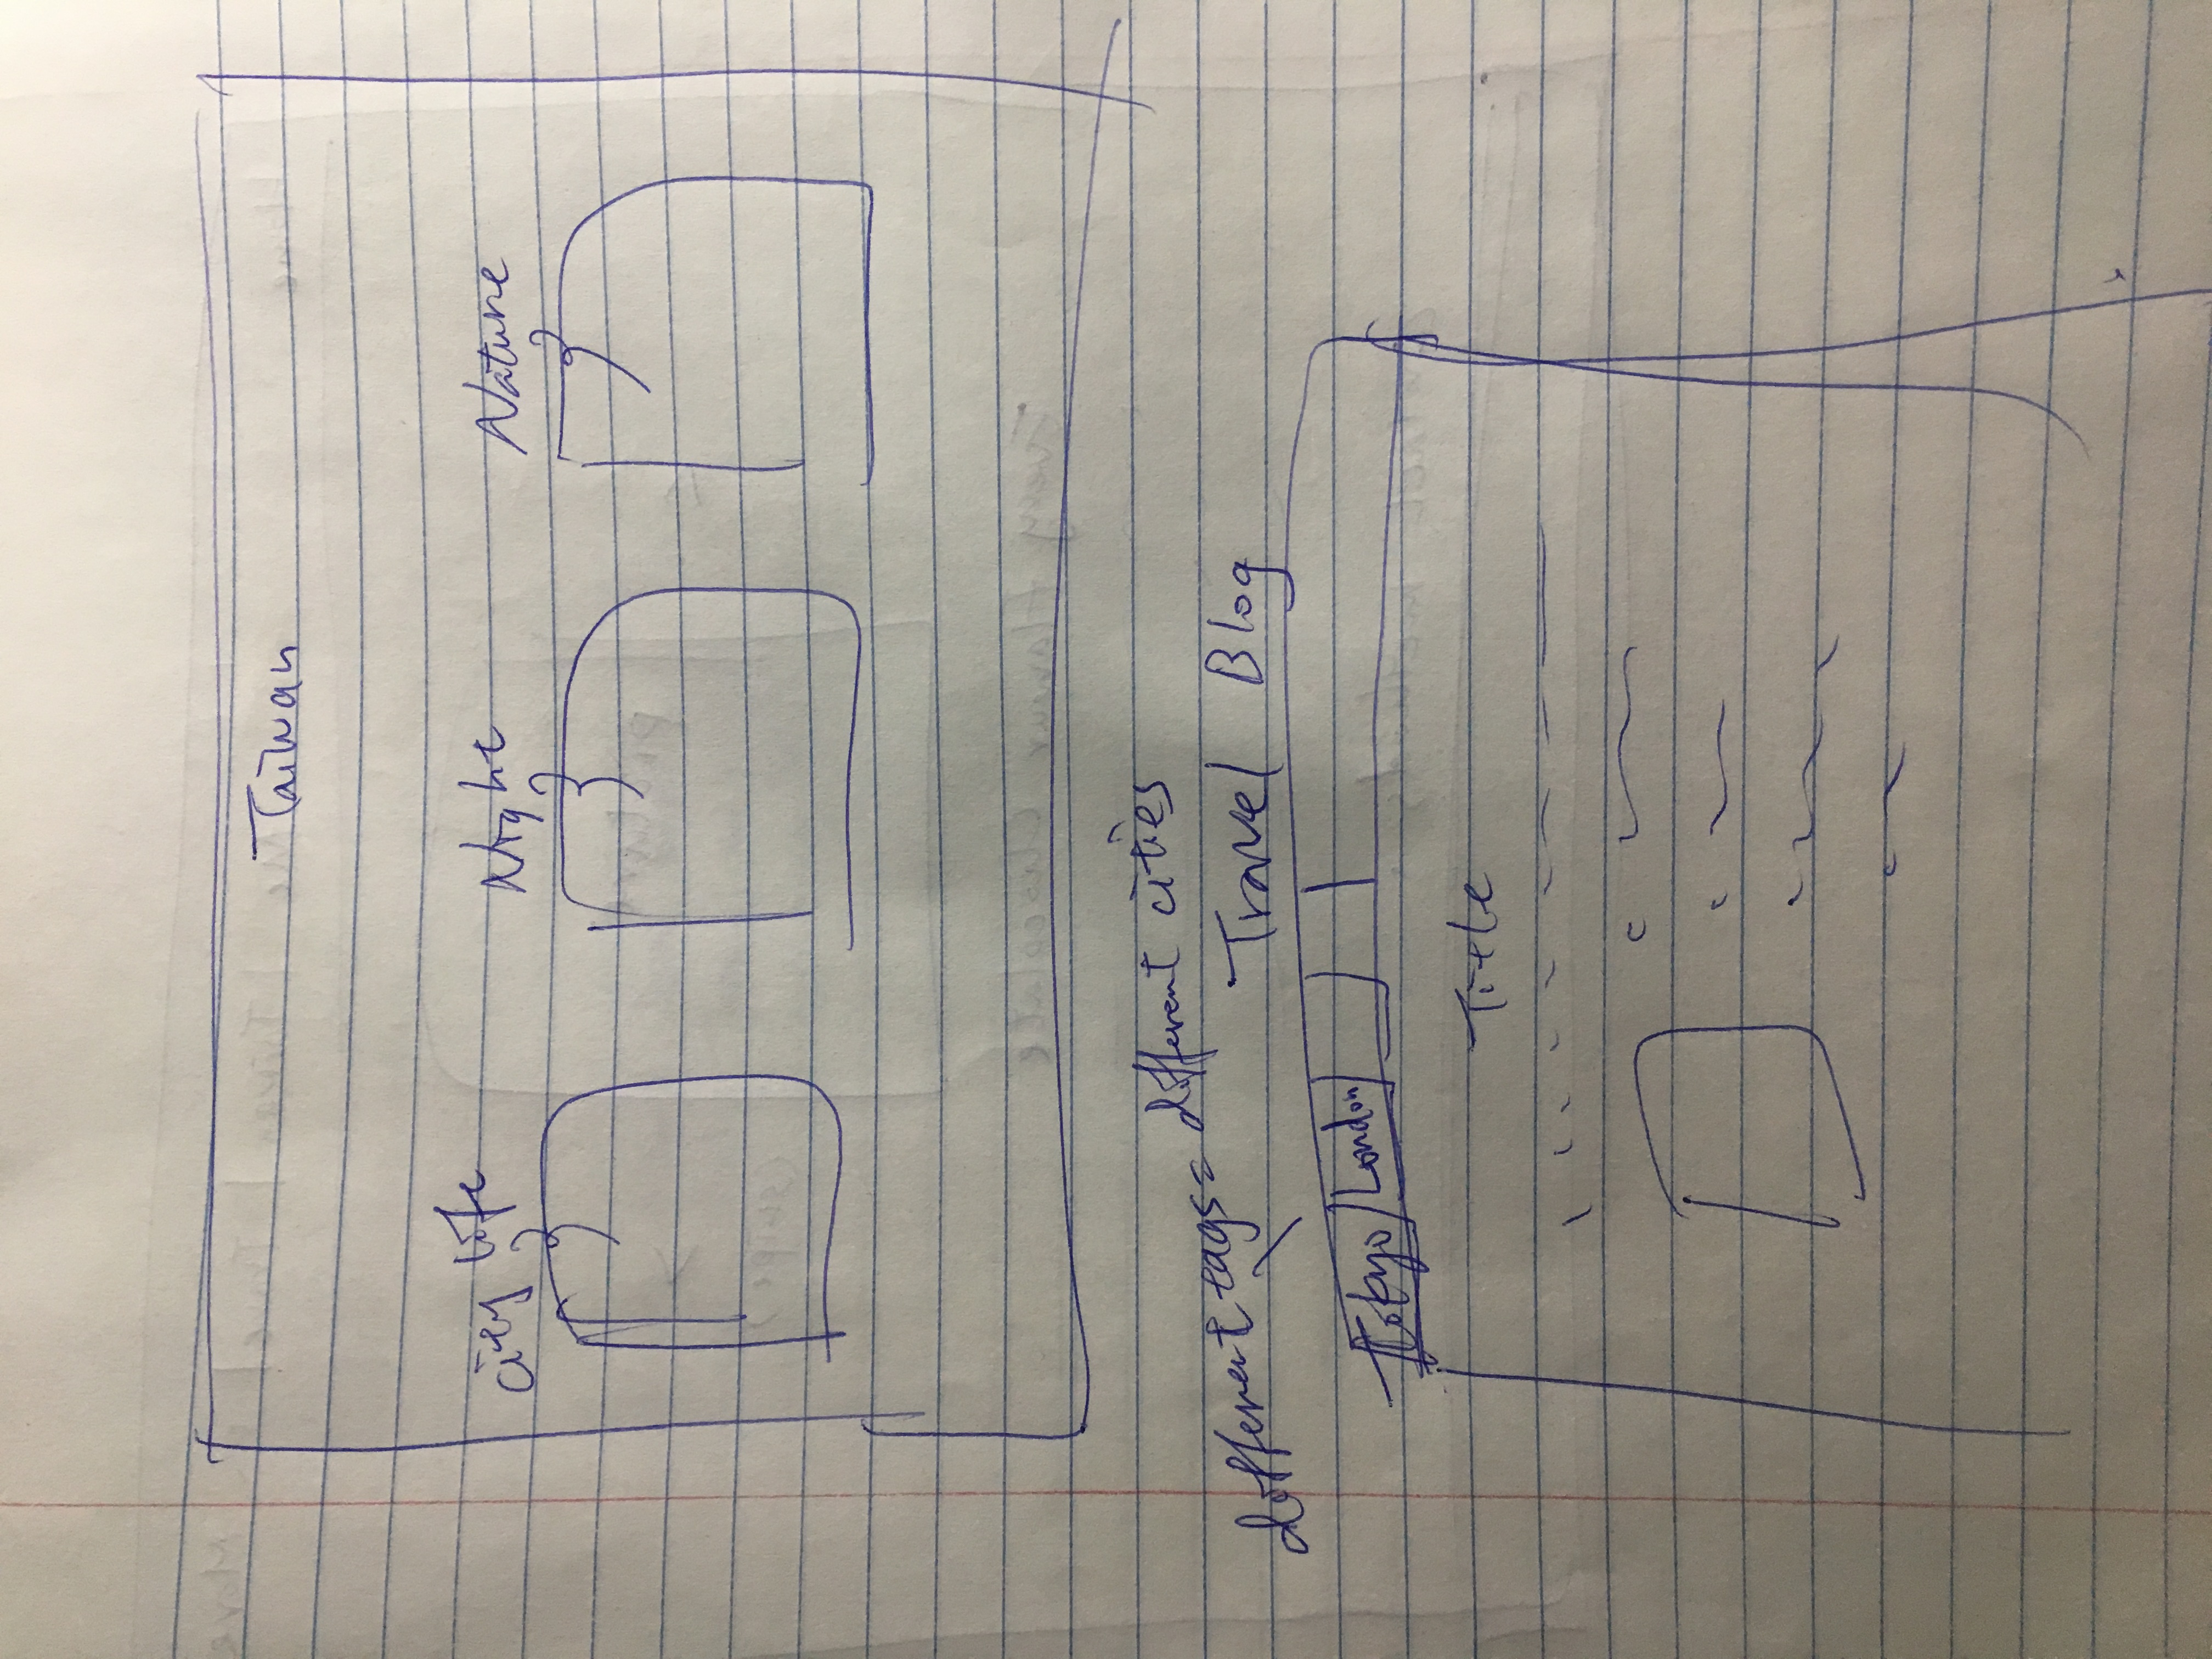 Taiwan
City life
Night
Nature
different tags = different cities
Travel Blog
Tokyo London
Title